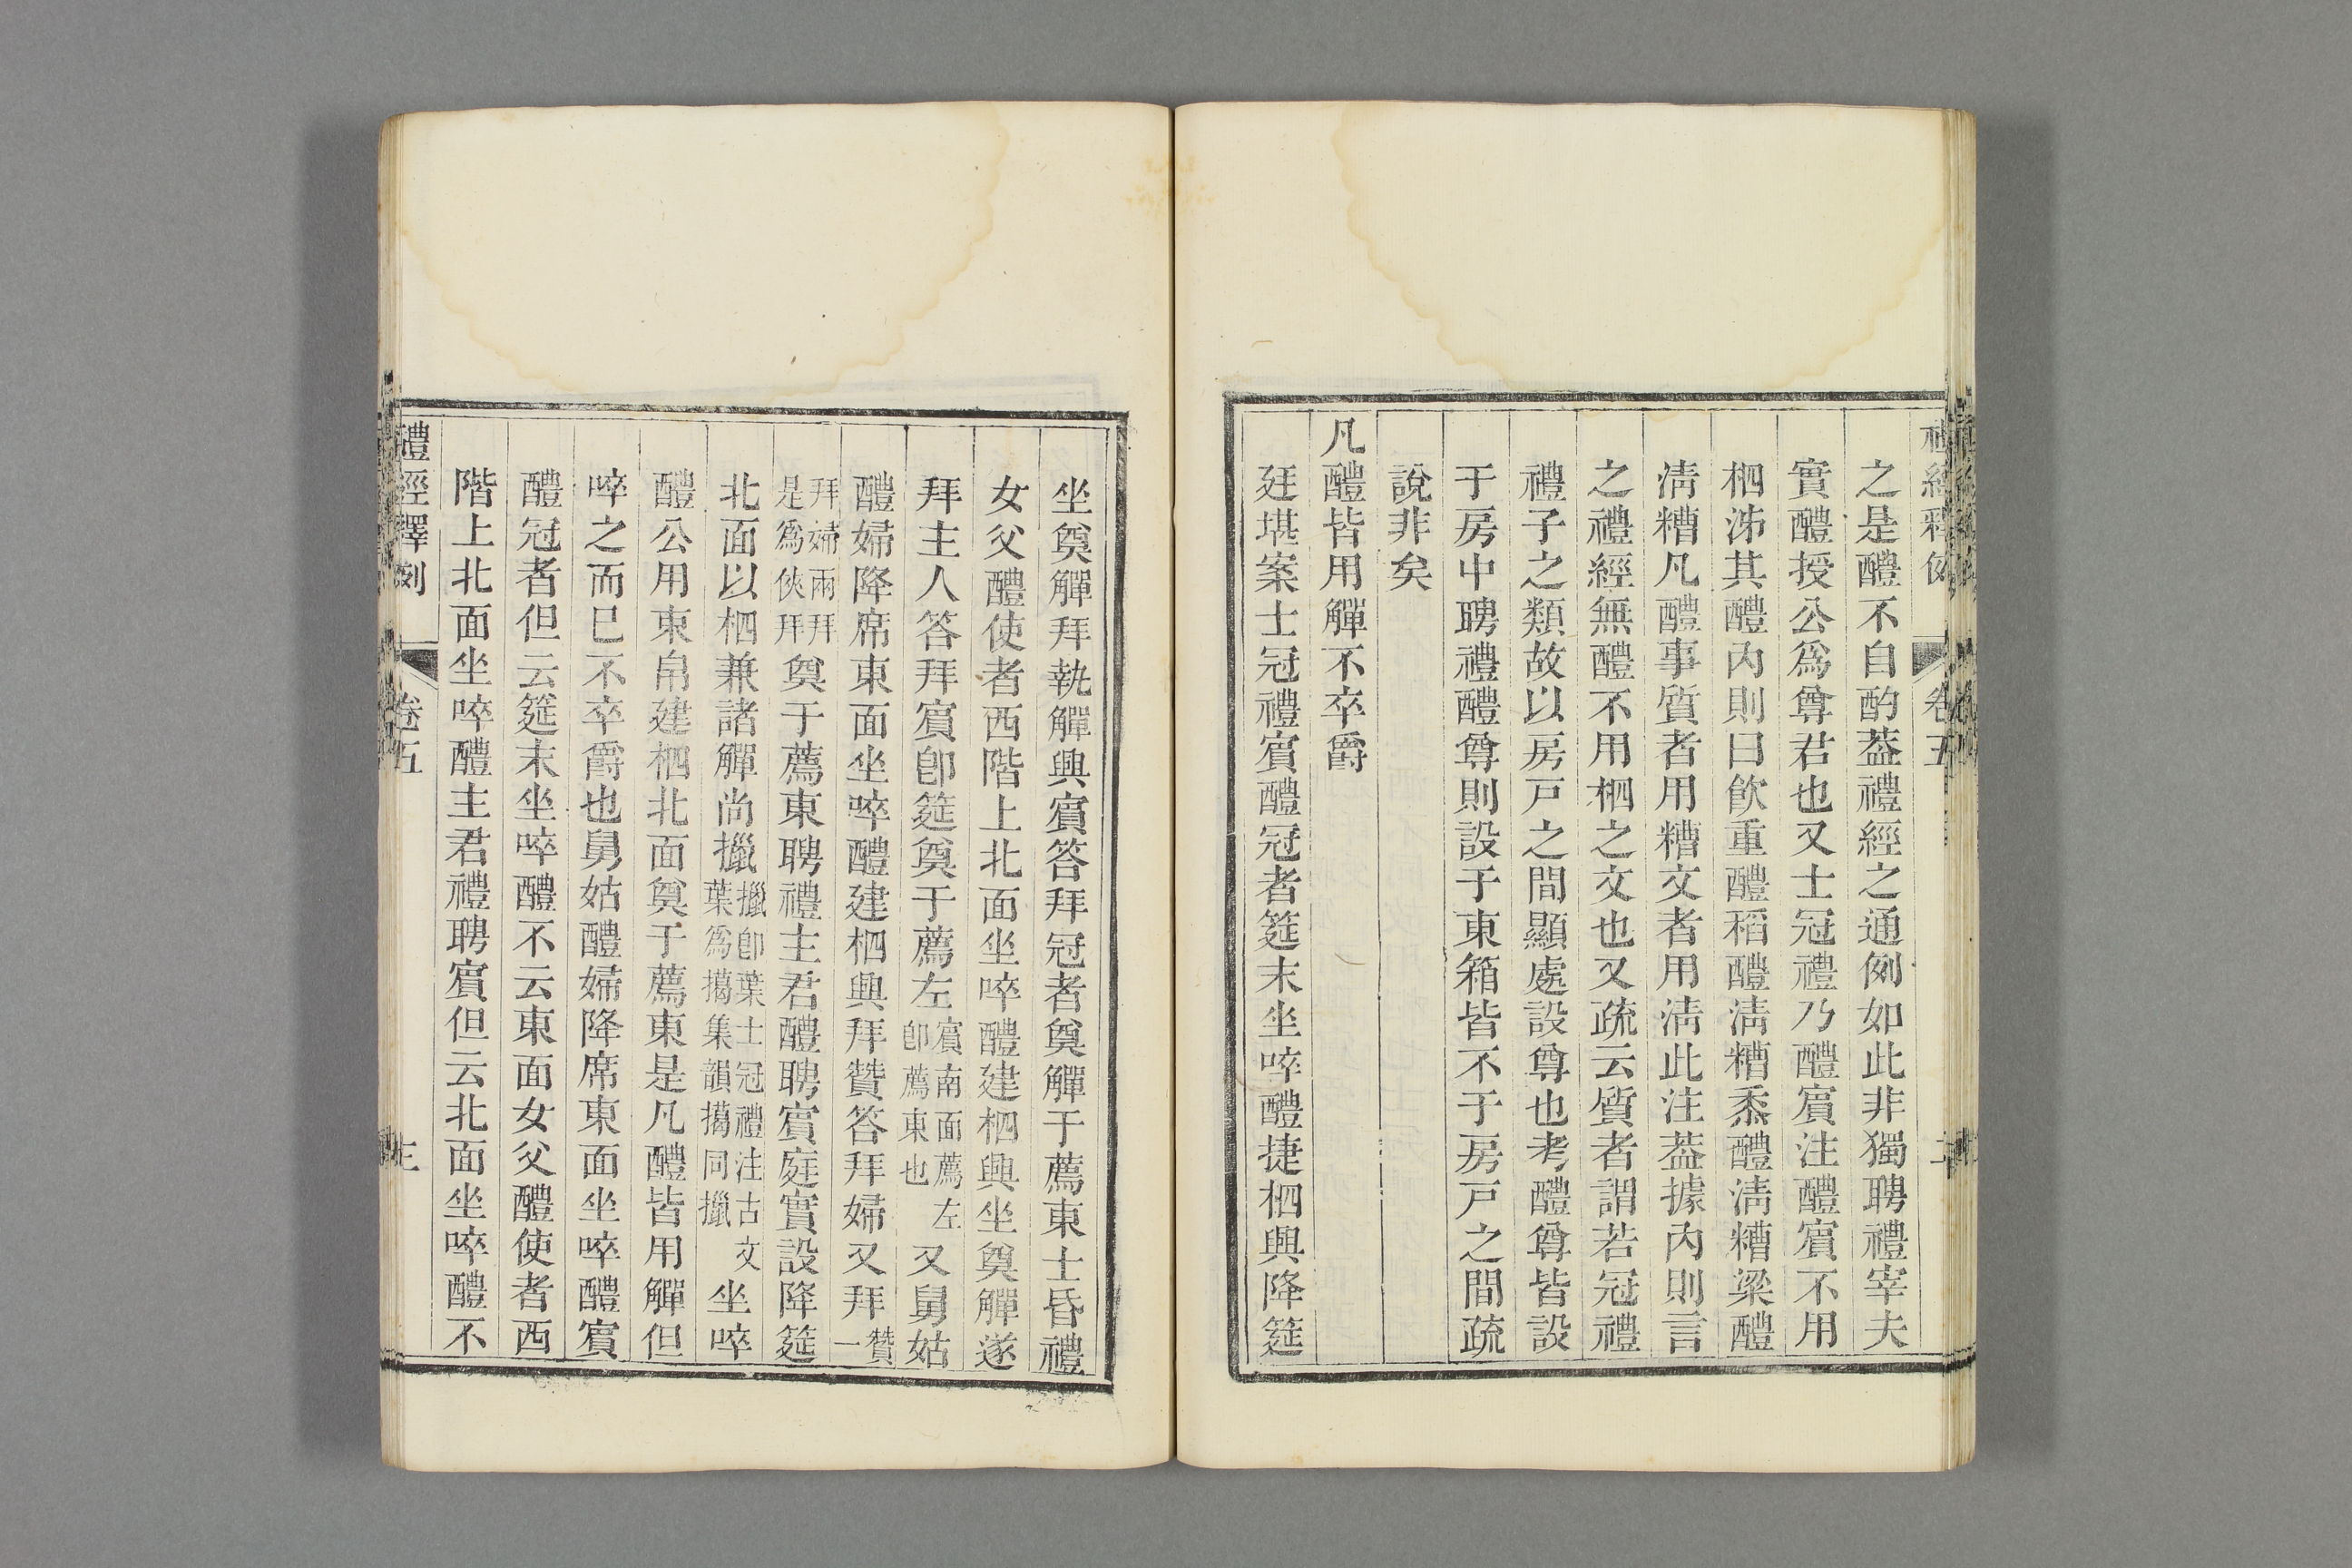 禮經釋例 卷五
之是醴不自酌葢禮經之通例如此非獨聘禮宰夫
實醴授公爲尊君也又士冠禮乃醴賓注醴賓不用
柶泲其醴內則曰飲重醴稻醴淸糟黍醴淸糟粱醴
淸糟凡醴事質者用糟文者用淸此注葢據內則言
之禮經無醴不用柶之文也又疏云質者謂若冠禮
禮子之類故以房戸之間顯處設尊也考醴尊皆設
于房中聘禮醴尊則設于東箱皆不于房戸之間疏
說非矣
凡醴皆用觶不卒爵
廷堪案士冠禮賓醴冠者筵末坐啐醴捷柶興降筵
坐奠觶拜執觶興賓答拜冠者奠觶于薦東士昏禮
女父醴使者西階上北面坐啐醴建柶興坐奠觶遂
拜主人答拜賓卽筵奠于薦左賓南面薦左卽薦東也又舅姑
醴婦降席東面坐啐醴建柶興拜贊答拜婦又拜贊一
拜婦兩拜是爲俠拜奠于薦東聘禮主君醴聘賓庭實設降筵
北面以柶兼諸觶尚擸擸卽葉士冠禮注古文葉爲擖集韻擖同擸坐啐
醴公用束帛建柶北面奠于薦東是凡醴皆用觶但
啐之而已不卒爵也舅姑醴婦降席東面坐啐醴賓
醴冠者但云筵末坐啐醴不云東面女父醴使者西
階上北面坐啐醴主君禮聘賓但云北面坐啐醴不
禮經釋例 卷五